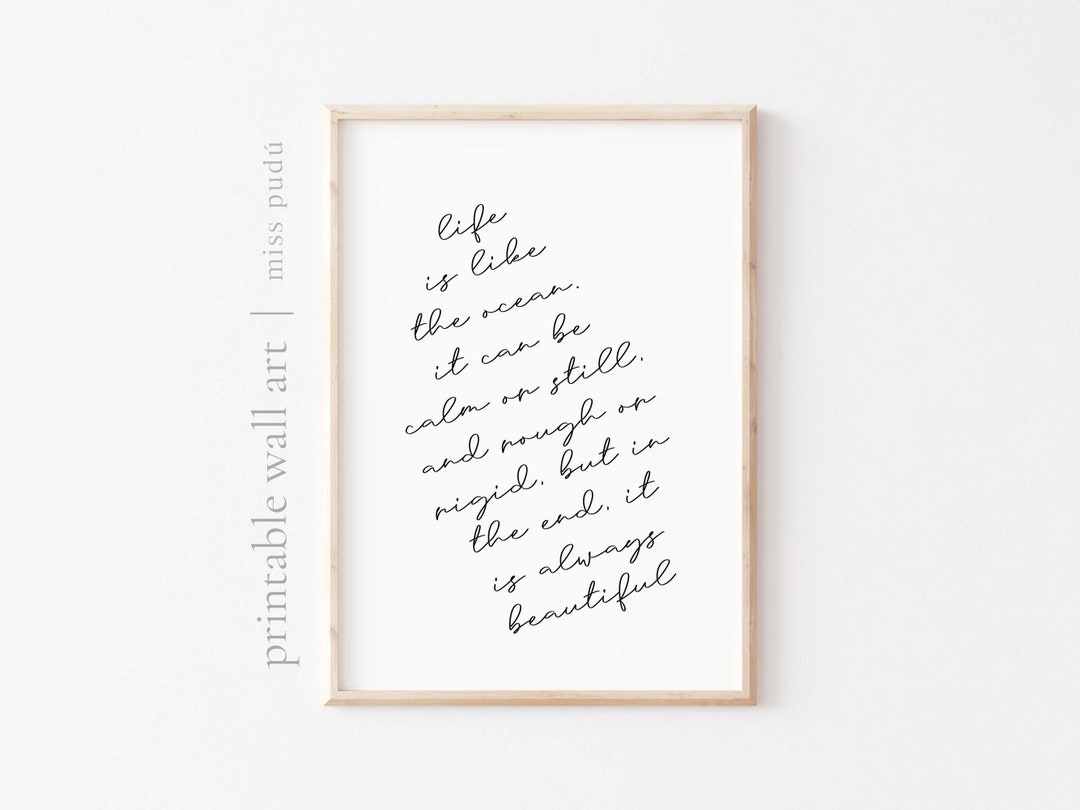 printable wall art | miss pudú
life
is like
the ocean.
it can be
calm or still,
and rough or
rigid, but in
the end, it
is always
beautiful